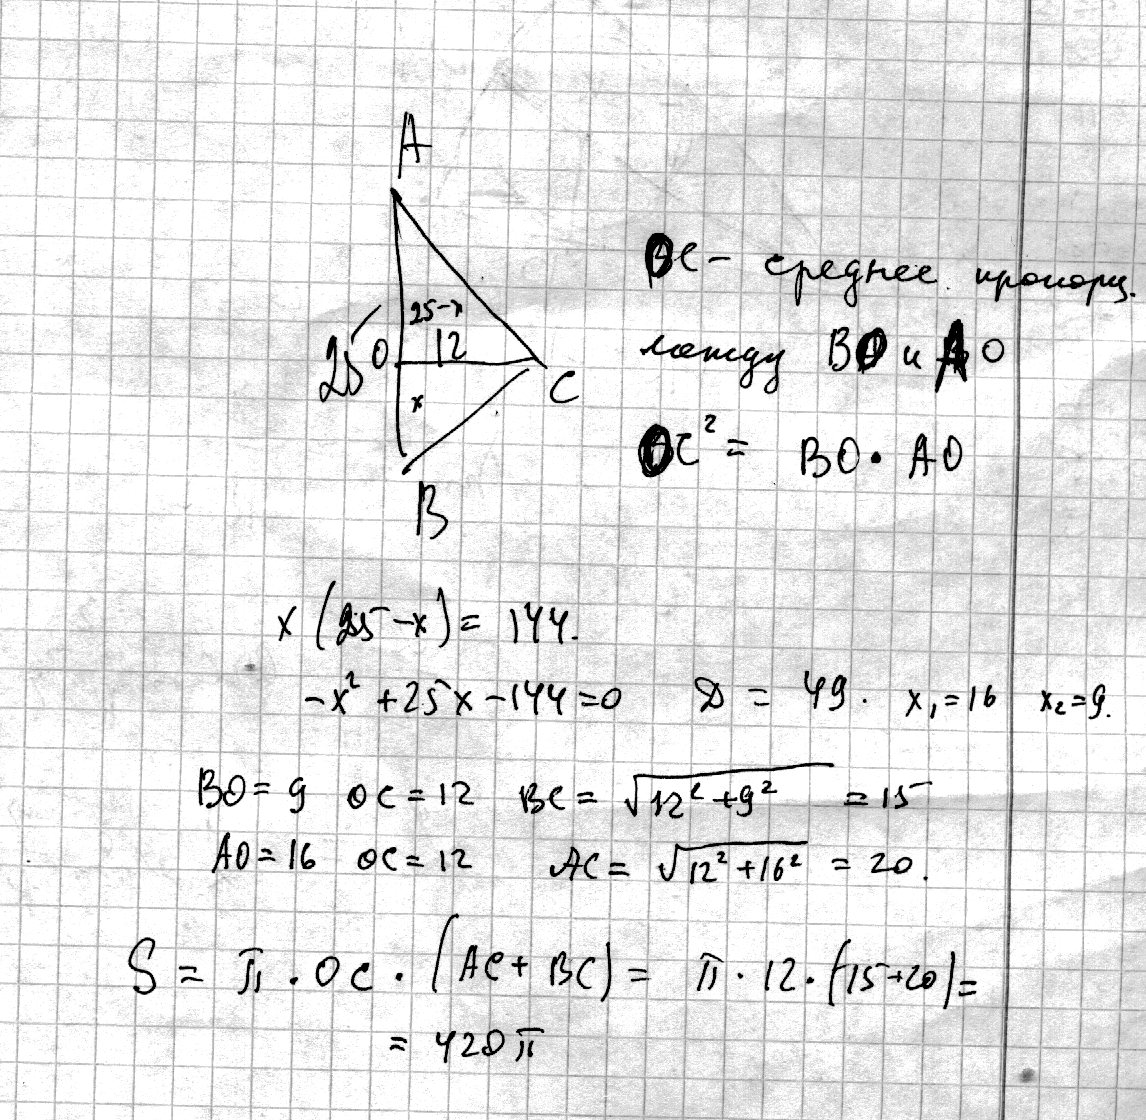 A
OC - среднее пропорц.
25-x
25
O
12
между BO и AO
x
C
OC² = BO · AO
B
x (25-x) = 144.
-x² + 25x - 144 = 0 D = 49. x₁ = 16 x₂ = 9.
BO = 9 OC = 12 BC = √(12² + 9²) = 15
AO = 16 OC = 12 AC = √(12² + 16²) = 20.
S = π · OC · (AC + BC) = π · 12 · (15 + 20) =
= 420 π